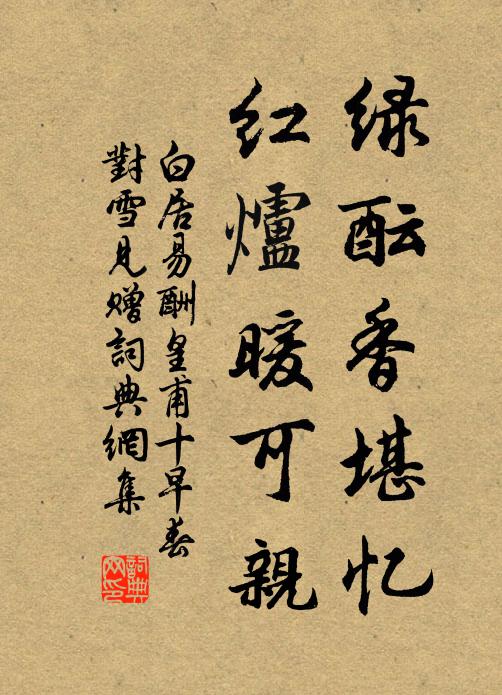 绿酝香堪忆
红爐暖可親
白居易酬皇甫十早春
對雪見赠詞典網集
詞典
网印